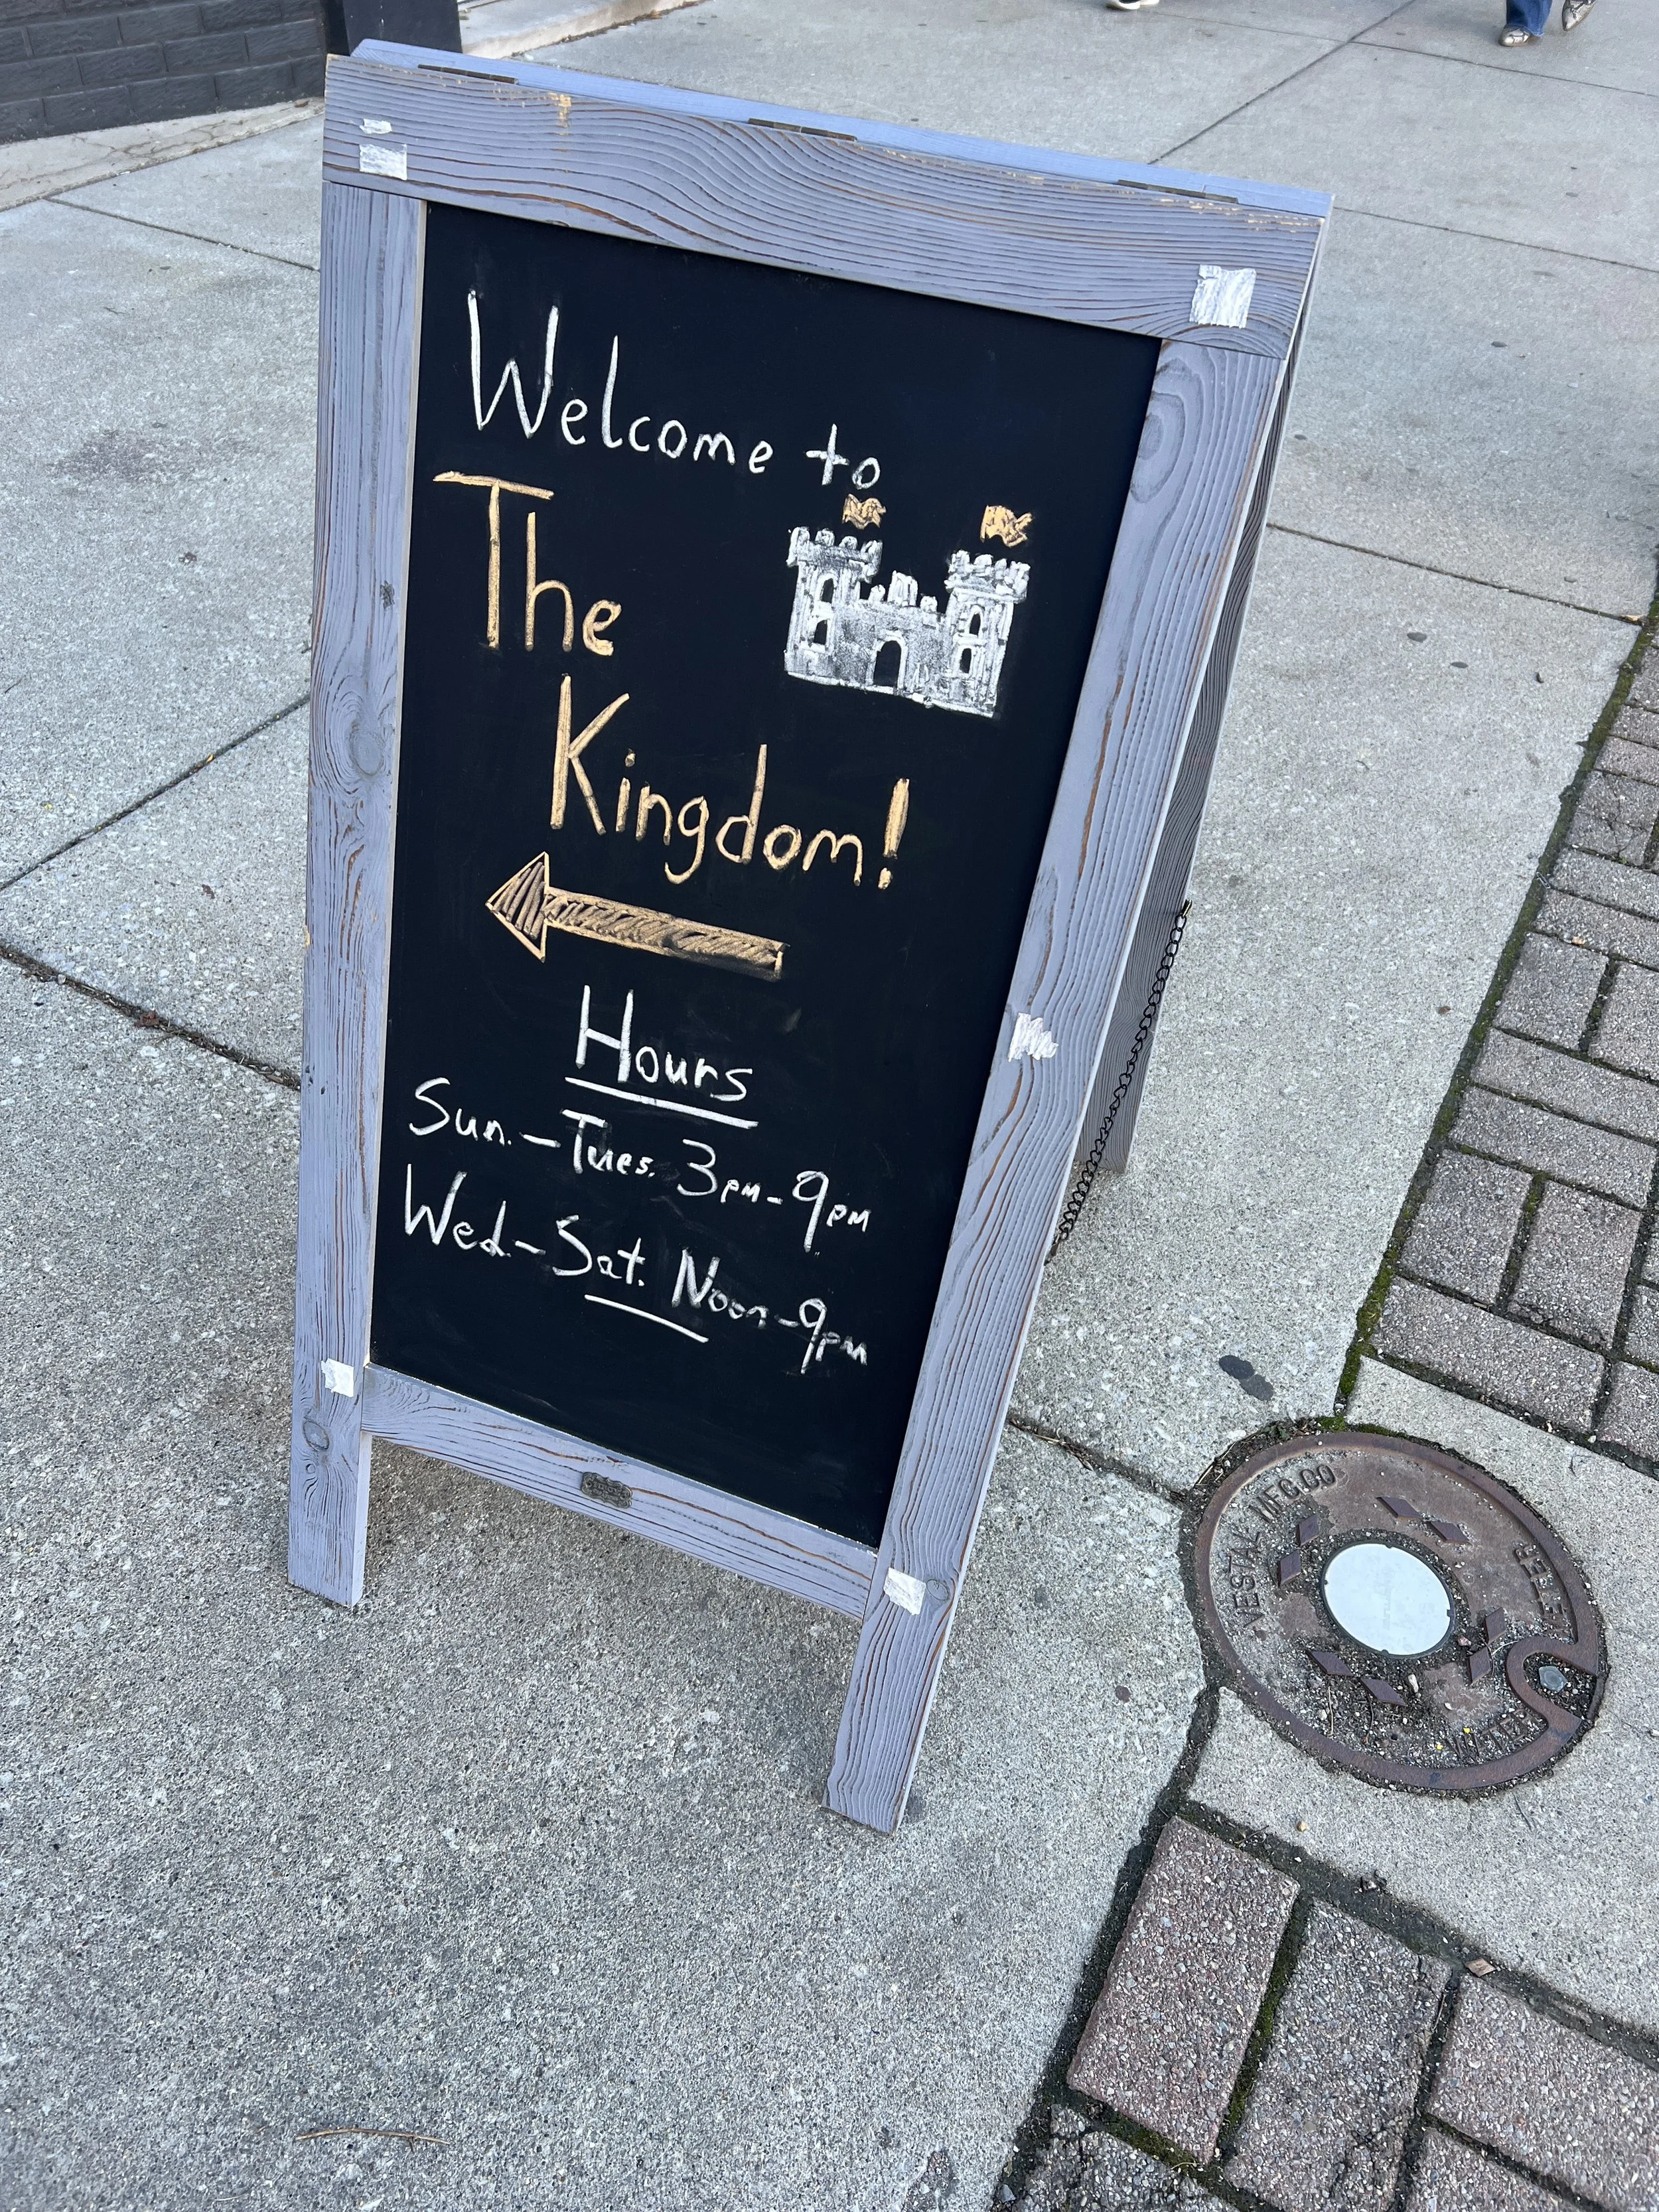 Welcome to
The
Kingdom!
Hours
Sun.-Tues. 3pm-9pm
Wed-Sat. Noon-9pm
VESTAL MFG.CO
METER
WATER